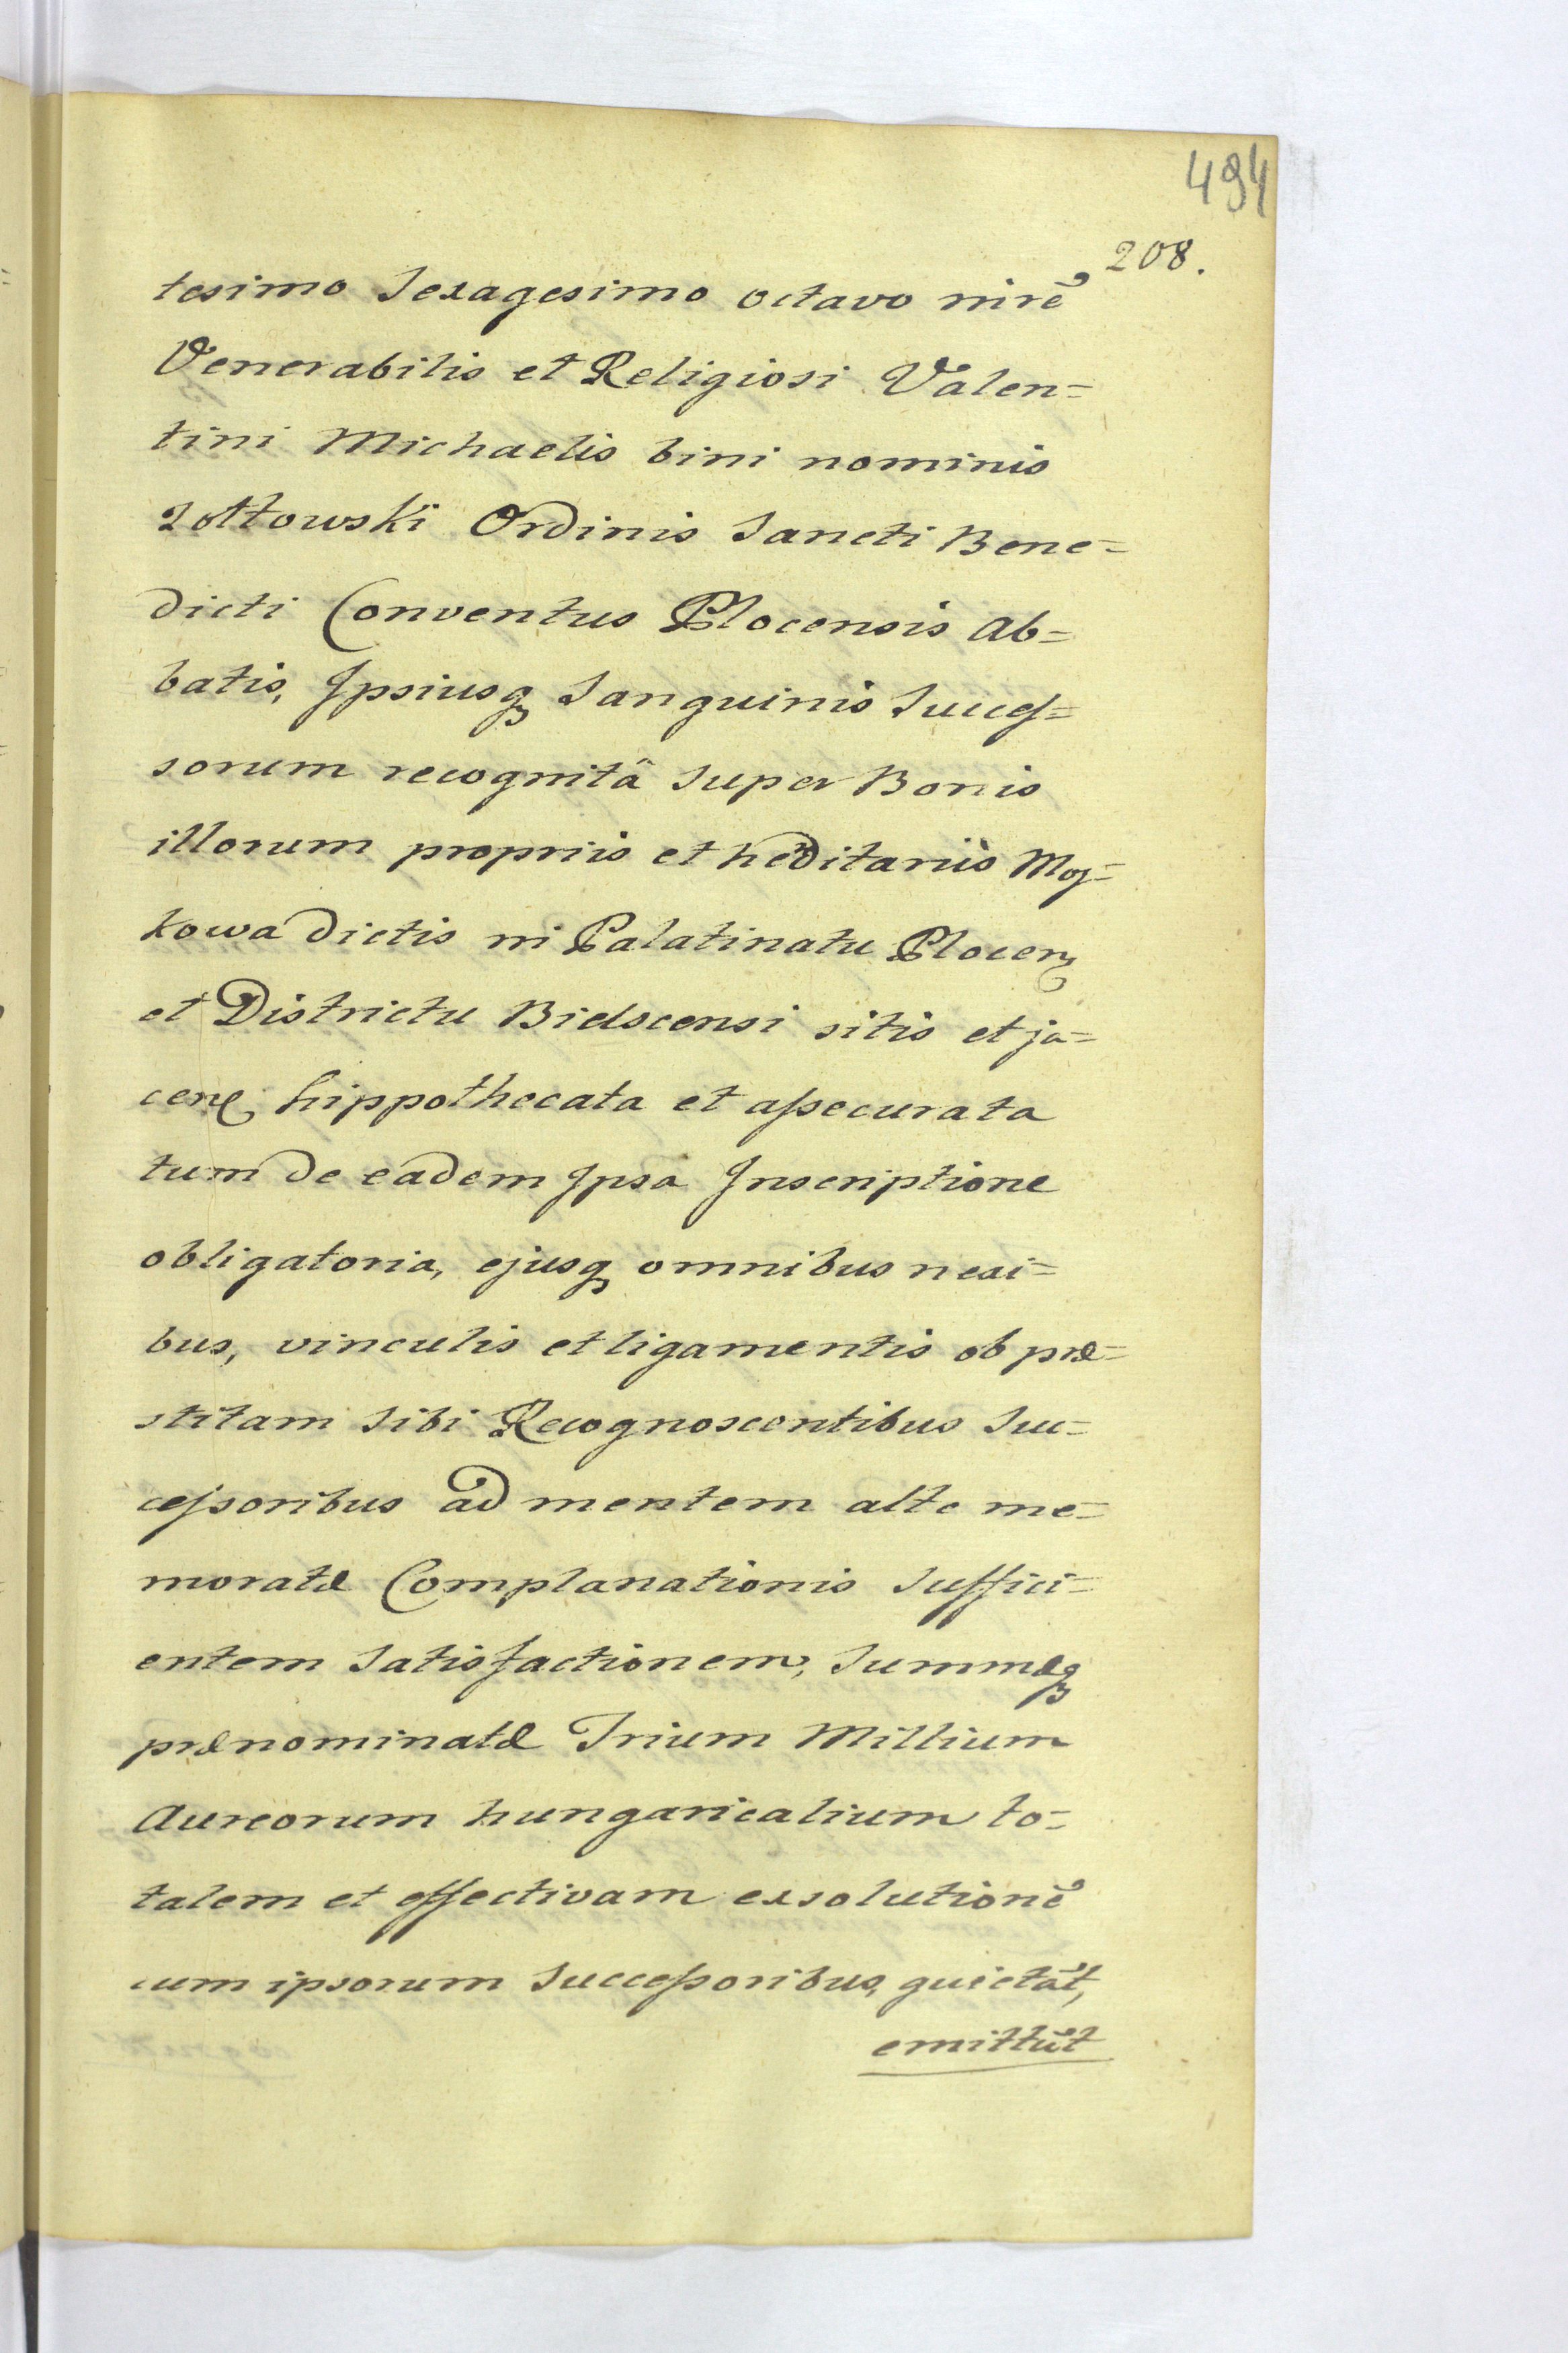 494
208.
tesimo Sexagesimo octavo nirẽ
Venerabilis et Religiosi Valen=
tini Michaelis bini nominis
Zołtowski Ordinis Sancti Bene=
dicti Conventus Plocensis Ab=
batis, Ipsiusq Sanguinis Succeſ=
sorum recognitâ super Bonis
illorum propriis et hẽditariis Moy=
kowa dictis in Palatinatu Plocen
et Districtu Bielscensi sitis et ja=
cen hippothecata et aſsecurata
tum de eadem Ipsa Inscriptione
obligatoria, ejusq omnibus nexi=
bus, vinculis et ligamentis ob præ=
stitam sibi Recognoscentibus Suc=
ceſsoribus ad mentem alte me=
moratæ Complanationis Suffici=
entem Satisfactionem, Summæq
prænominatæ Trium Millium
Aureorum hungaricalium to=
talem et effectivam exsolutionẽ
cum ipsorum Succeſsoribus, quietãt,
emittũt